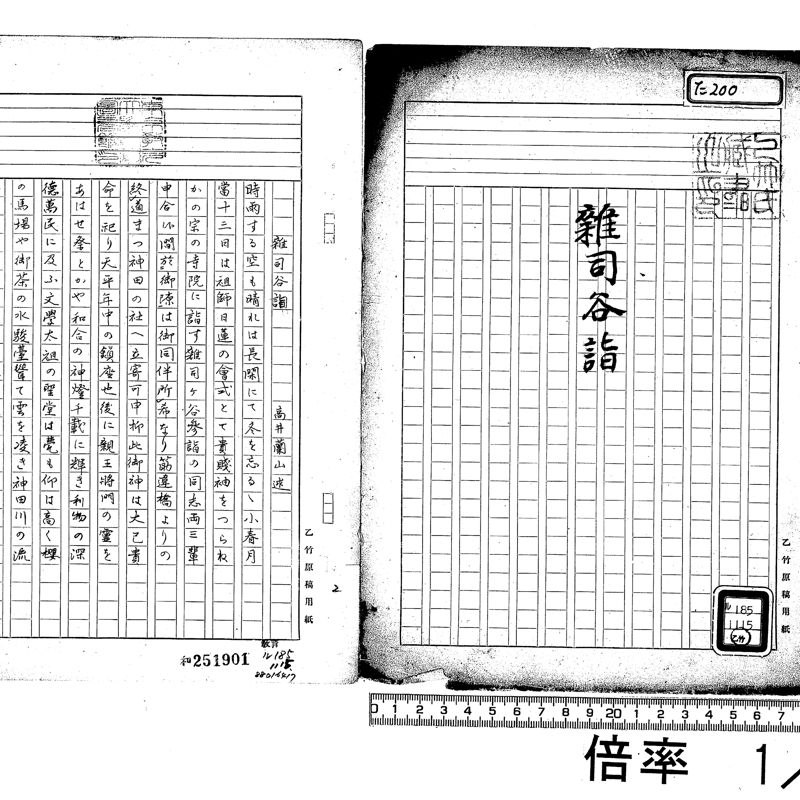 た200
雜司谷詣
乙竹原稿用紙
ル185
1115
(乙竹)
雜司谷詣　高井蘭山 述
時雨する空も晴れは長閑にて冬を忘るゝ小春月
當十三日は祖師日蓮の會式とて貴賤袖をつらね
かの宗の寺院に詣す雜司ヶ谷參詣の同志両三輩
申合候間於御隙は御同伴所希なり筋違橋よりの
終道まつ神田の社へ立寄可申抑此御神は大己貴
命を祀り天平年中の鎮座也後に親王将門の霊を
あはせ祭とかや和合の神燈千載に輝き利物の深
徳萬民に及ふ文學太祖の聖堂は甍も仰は高く櫻
の馬場や御茶の水駿臺聳て雲を凌き神田川の流
乙竹原稿用紙
2
和251901
ル185
1115
0 1 2 3 4 5 6 7 8 9 20 1 2 3 4 5 6 7
倍率 1/